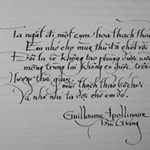 Ta ngắt đi một cụm hoa thạch thảo
Em nhớ cho mùa thu đã chết rồi
Đôi ta sẽ không tao phùng được nữa
mộng trùng lai không có được trên
Hương thời gian mùi thạch thảo bốc hơi
Và nhớ nhé ta đợi chờ em đó
Guillaume Apollinaire
Bùi Giáng